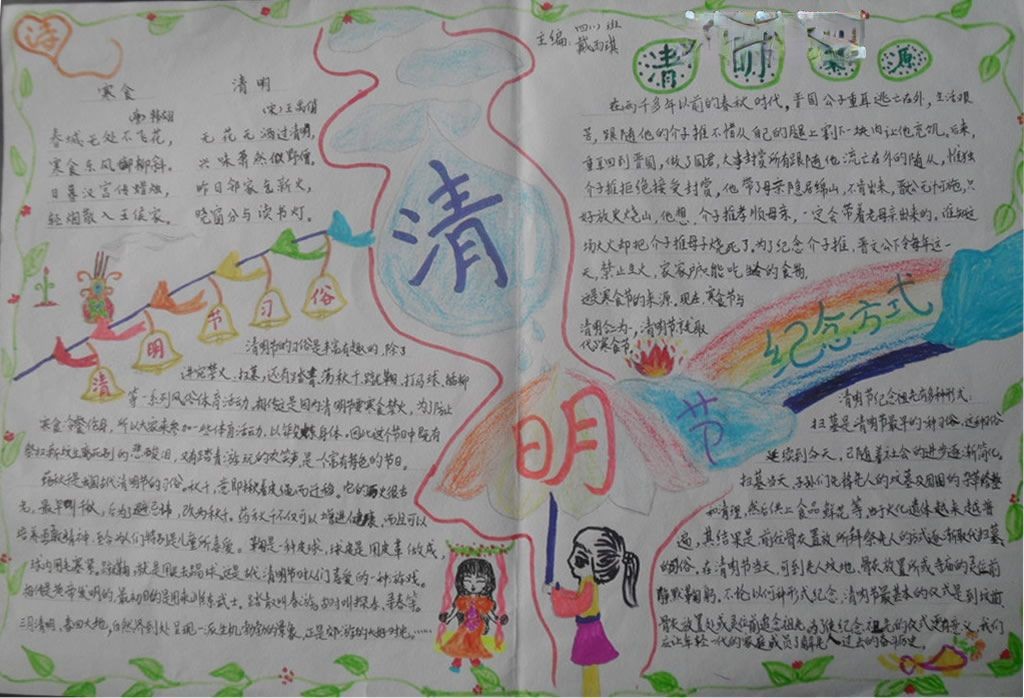 游
寒食
(唐)韩翃
春城无处不飞花，
寒食东风御柳斜。
日暮汉宫传蜡烛，
轻烟散入王侯家。
清明
(宋)王禹偁
无花无酒过清明，
兴味萧然似野僧。
昨日邻家乞新火，
晓窗分与读书灯。
清明节习俗
清明节的习俗是丰富有趣的，除了
讲究禁火、扫墓，还有踏青、荡秋千、蹴鞠、打马球、插柳
等一系列风俗体育活动。相传这是因为清明节要寒食禁火，为了防止
寒食冷餐伤身，所以大家来参加一些体育活动，以锻炼身体。因此这个节日中既有
祭扫新坟生离死别的悲酸泪，又有踏青游玩的欢笑声，是一个富有特色的节日。
荡秋千是我国古代清明节的习俗。秋千，意即揪着皮绳而迁移。它的历史很古
老，最早叫千秋，后为了避忌讳，改为秋千。荡秋千不仅可以增进健康，而且可以
培养勇敢精神，至今为人们特别是儿童所喜爱。鞠是一种皮球，球皮是用皮革做成，
球内用毛塞紧。蹴鞠，就是用足去踢球。这是古代清明节时人们喜爱的一种游戏。
相传是黄帝发明的，最初目的是用来训练武士。踏青又叫春游。古时叫探春、寻春等。
三月清明，春回大地，自然界到处呈现一派生机勃勃的景象，正是郊游的大好时光。……
清
明
节
主编：四(1)班
戴雨琪
清明来源
在两千多年以前的春秋时代，晋国公子重耳逃亡在外，生活艰
苦，跟随他的介子推不惜从自己的腿上割下一块肉让他充饥。后来，
重耳回到晋国，做了国君，大事封赏所有跟随他流亡在外的随从，惟独
介子推拒绝接受封赏，他带了母亲隐居绵山，不肯出来，晋文公无计可施，只
好放火烧山，他想，介子推孝顺母亲，一定会带着老母亲出来的。谁知这
场大火却把介子推母子烧死了。为了纪念介子推，晋文公下令每年这一
天，禁止生火，家家户户只能吃生冷的食物，
这是寒食节的来源。现在，寒食节与
清明合为一，清明节就取
代了寒食节。
纪念方式
清明节纪念祖先有多种形式：
扫墓是清明节最早的一种习俗，这种习俗
延续到今天，已随着社会的进步逐渐简化。
扫墓当天，子孙们先将先人的坟墓及周围的杂草修整
和清理，然后供上食品鲜花等。由于火化遗体越来越普
遍，其结果是前往骨灰置放所拜祭先人的方式逐渐取代扫墓
的习俗。在清明节当天，可到先人坟地、骨灰放置所或寺庙的灵位前
静默鞠躬。不论以何种形式纪念，清明节最基本的仪式是到坟前、
骨灰放置处或灵位前追念祖先。为了使纪念祖先的仪式更有意义，我们
应让年轻一代的家庭成员了解先人过去的奋斗历史。